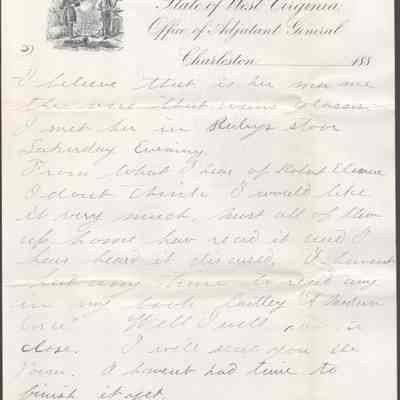 State of West Virginia
Office of Adjutant General
2)
Charleston 188
I believe that is her ma me
the one that wears glasses.
I met her in Rubys stoor
Saturday Evening.
From What I hear of Robert Elsmere
I dont think I would like
it very much, most all of them
up home hav read it and I
hav heard it discused, I havent
had any time to read any
in my book
Well I will
close. I will send you the
Poem. I havent had time to
finish it yet.